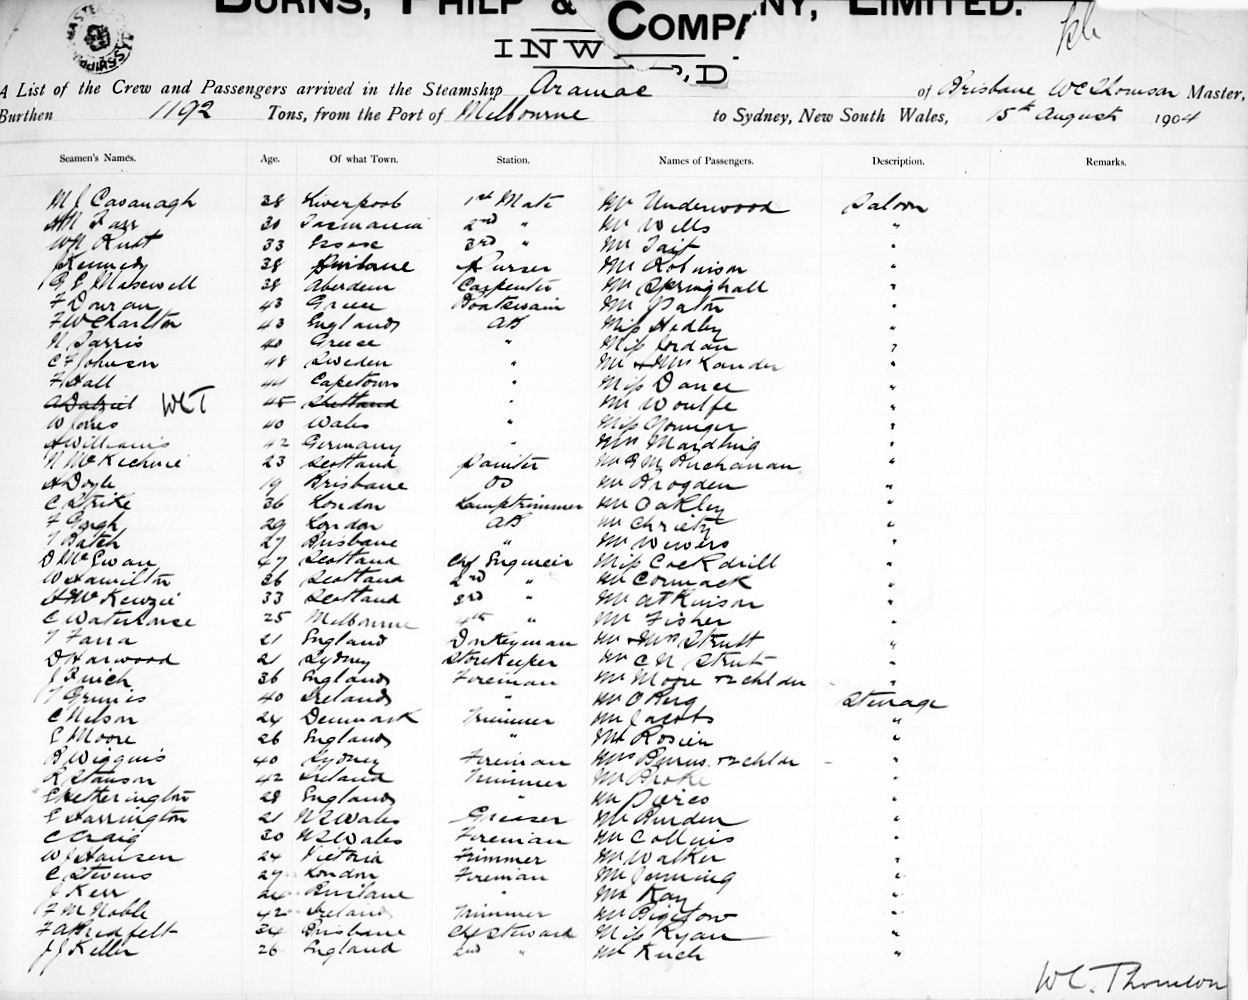 BURNS, PHILP & COMPANY, LIMITED.
INWARD
A List of the Crew and Passengers arrived in the Steamship Aramac of Brisbane W C Thomson Master,
Burthen 1192 Tons, from the Port of Melbourne to Sydney, New South Wales, 15th August 1904
Seamen's Names. Age. Of what Town. Station. Names of Passengers. Description. Remarks.
M J Cavanagh 38 Liverpool 1st Mate Mr Underwood Saloon
30 Tasmania 2nd " Mr Wills "
33 Essex 3rd " Mr Tait "
Kennedy 38 Brisbane Purser Mr Robinson "
38 Aberdeen Carpenter Mr Springhall "
43 Greece Boatswain Mr Paton "
F W Charlton 43 England AB Miss Hedley "
40 Greece " Miss Jordan "
C F Johnson 48 Sweden " Mr & Mrs Kander "
F Hall 44 Capetown " Miss Dance "
A Dalziel WCT 45 Shetland " Mr Woulfe "
W Jones 40 Wales " Miss Younger "
A Williams 42 Germany " Mrs "
N McKechnie 23 Scotland Painter Buchanan "
A Doyle 19 Brisbane OS Mr Brogden "
C Strike 36 London Lamptrimmer Mr Oakley "
F Gough 29 London AB Mr Christy "
T Batch 27 Brisbane " Mr "
D McEwan 47 Scotland Chf Engineer Miss Cockdrill "
W Hamilton 36 Scotland 2nd " Mr Cormack "
A McKenzie 33 Scotland 3rd " Mr Atkinson "
C Waterhouse 25 Melbourne 4th " Mr Fisher "
T Farra 21 England Donkeyman Mr & Mrs Strutt "
D Harwood 21 Sydney Storekeeper Mr C N Strutt "
J Finch 36 England Fireman Mr Moore + 2 chldn "
40 Ireland " Mr Steerage
C Nelson 24 Denmark Trimmer Mr Jacobs "
E Moore 26 England " Mr Rosien "
R Wiggins 40 Sydney Fireman Mrs Burns + 2 chldn "
R Stanson 42 Ireland Trimmer Mr Broke "
E Hetherington 28 England " Mr Pierce "
E Harrington 21 N S Wales Greaser Mr Burden "
C Craig 30 N S Wales Fireman Mr Collins "
W J Hansen 24 Victoria Trimmer Mr Walker "
C Stevens 27 London Fireman Mr Jenning "
J Kerr 24 Brisbane " Mr Kay "
F M Noble 42 Ireland Trimmer Mr Bigelow "
34 Brisbane Chf Steward Miss Ryan "
J J Keller 26 England 2nd " Mr Kuch "
W C. Thomson